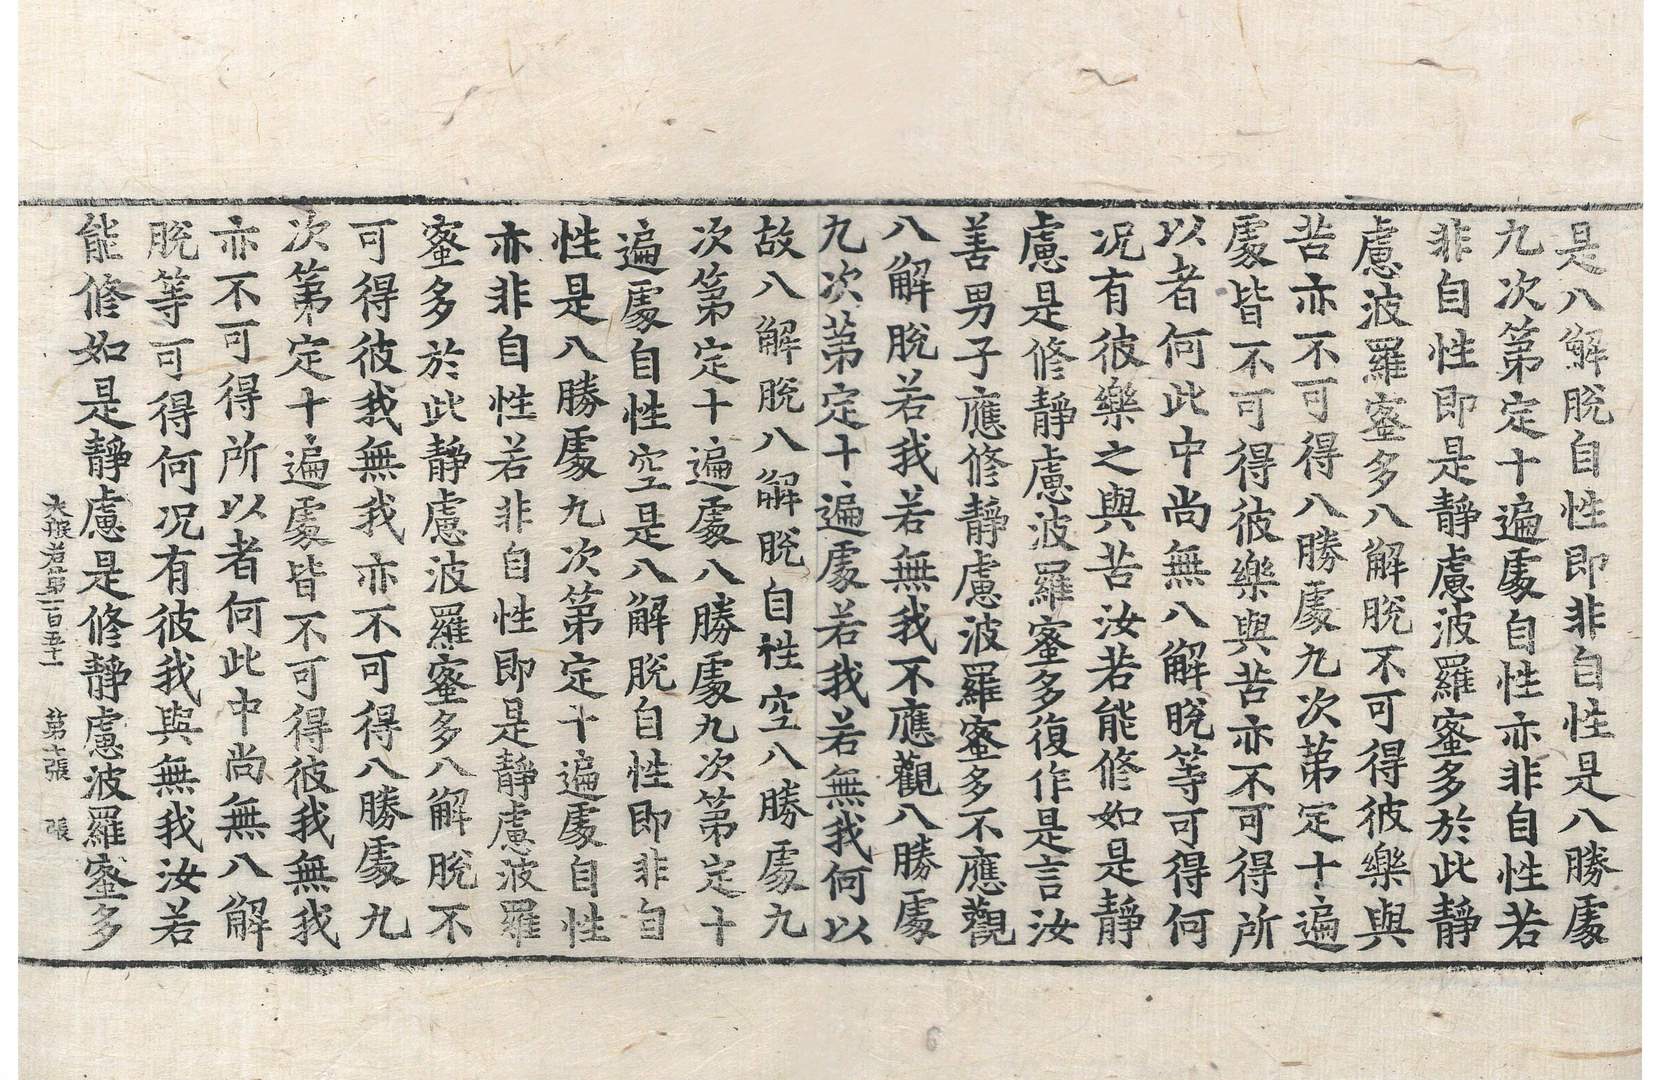 是八解脫自性即非自性是八勝處
九次第定十遍處自性亦非自性若
非自性即是靜慮波羅蜜多於此靜
慮波羅蜜多八解脫不可得彼樂與
苦亦不可得八勝處九次第定十遍
處皆不可得彼樂與苦亦不可得所
以者何此中尚無八解脫等可得何
况有彼樂之與苦汝若能修如是靜
慮是修靜慮波羅蜜多復作是言汝
善男子應修靜慮波羅蜜多不應觀
八解脫若我若無我不應觀八勝處
九次第定十遍處若我若無我何以
故八解脫八解脫自性空八勝處九
次第定十遍處八勝處九次第定十
遍處自性空是八解脫自性即非自
性是八勝處九次第定十遍處自性
亦非自性若非自性即是靜慮波羅
蜜多於此靜慮波羅蜜多八解脫不
可得彼我無我亦不可得八勝處九
次第定十遍處皆不可得彼我無我
亦不可得所以者何此中尚無八解
脫等可得何况有彼我與無我汝若
能修如是靜慮是修靜慮波羅蜜多
大般若第一百五十一 第七張 張